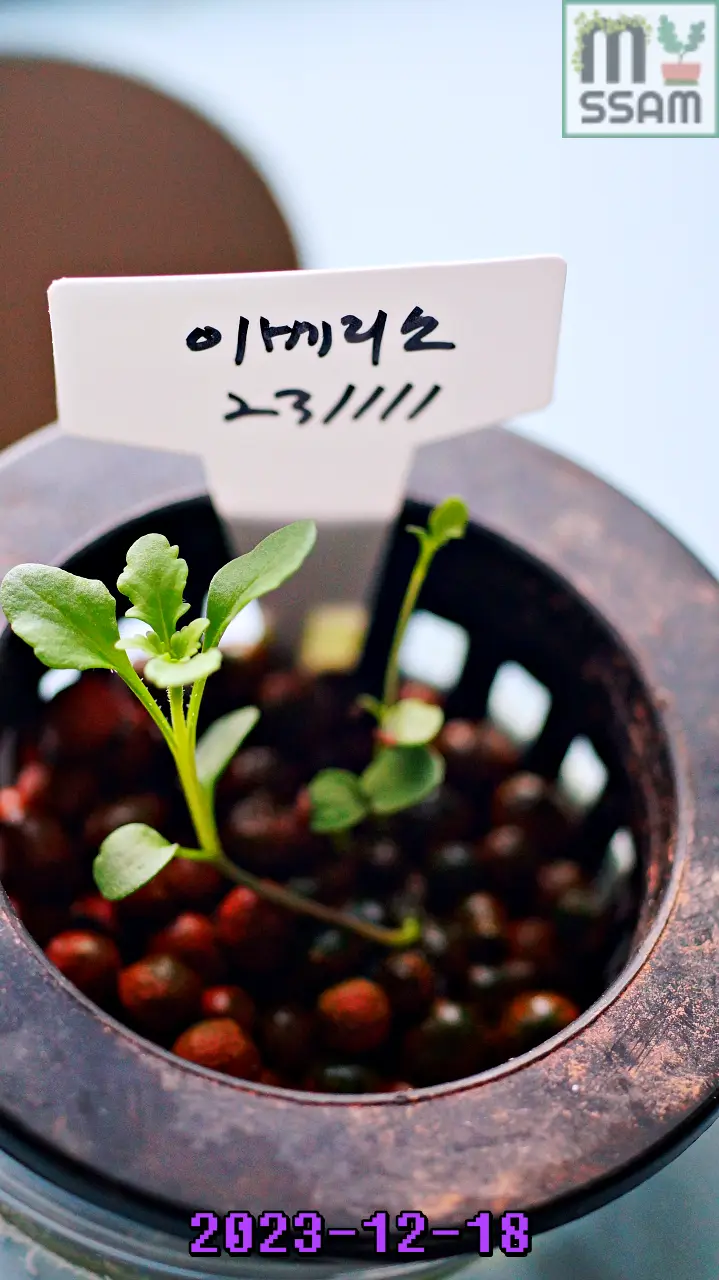 M
SSAM
이베리스
231111
2023-12-18